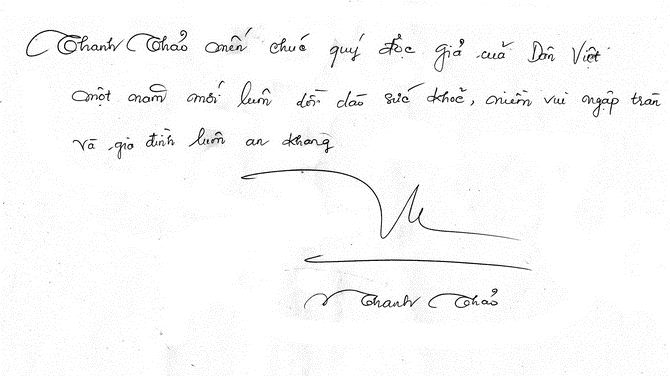 Thanh Thảo mến chúc quý độc giả của Dân Việt
một năm mới luôn dồi dào sức khoẻ, niềm vui ngập tràn
và gia đình luôn an khang
Thanh Thảo